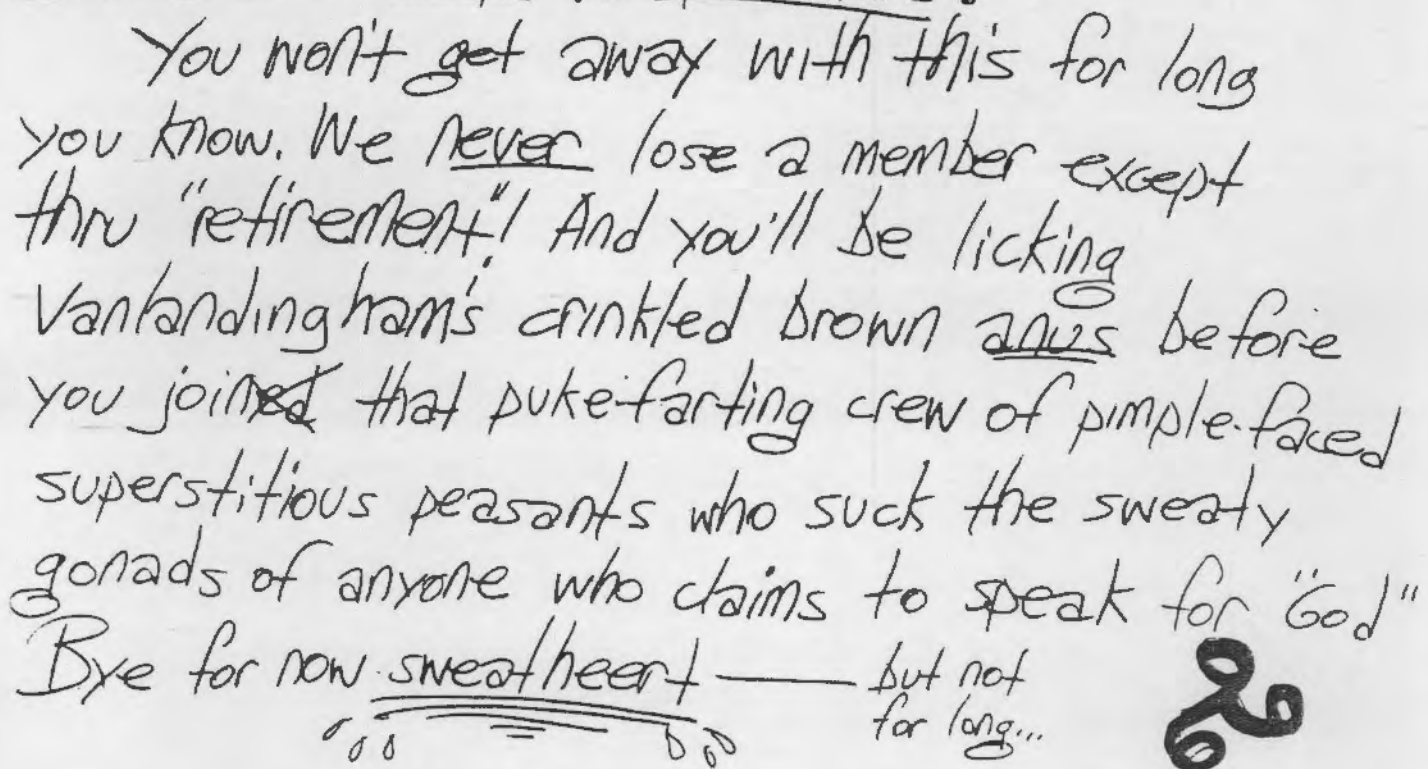 You won't get away with this for long
you know. We never lose a member except
thru "retirement"! And you'll be licking
Vanlandingham's crinkled brown anus before
you join that puke-farting crew of pimple-faced
superstitious peasants who suck the sweaty
gonads of anyone who claims to speak for "God"
Bye for now sweatheert — but not
for long...